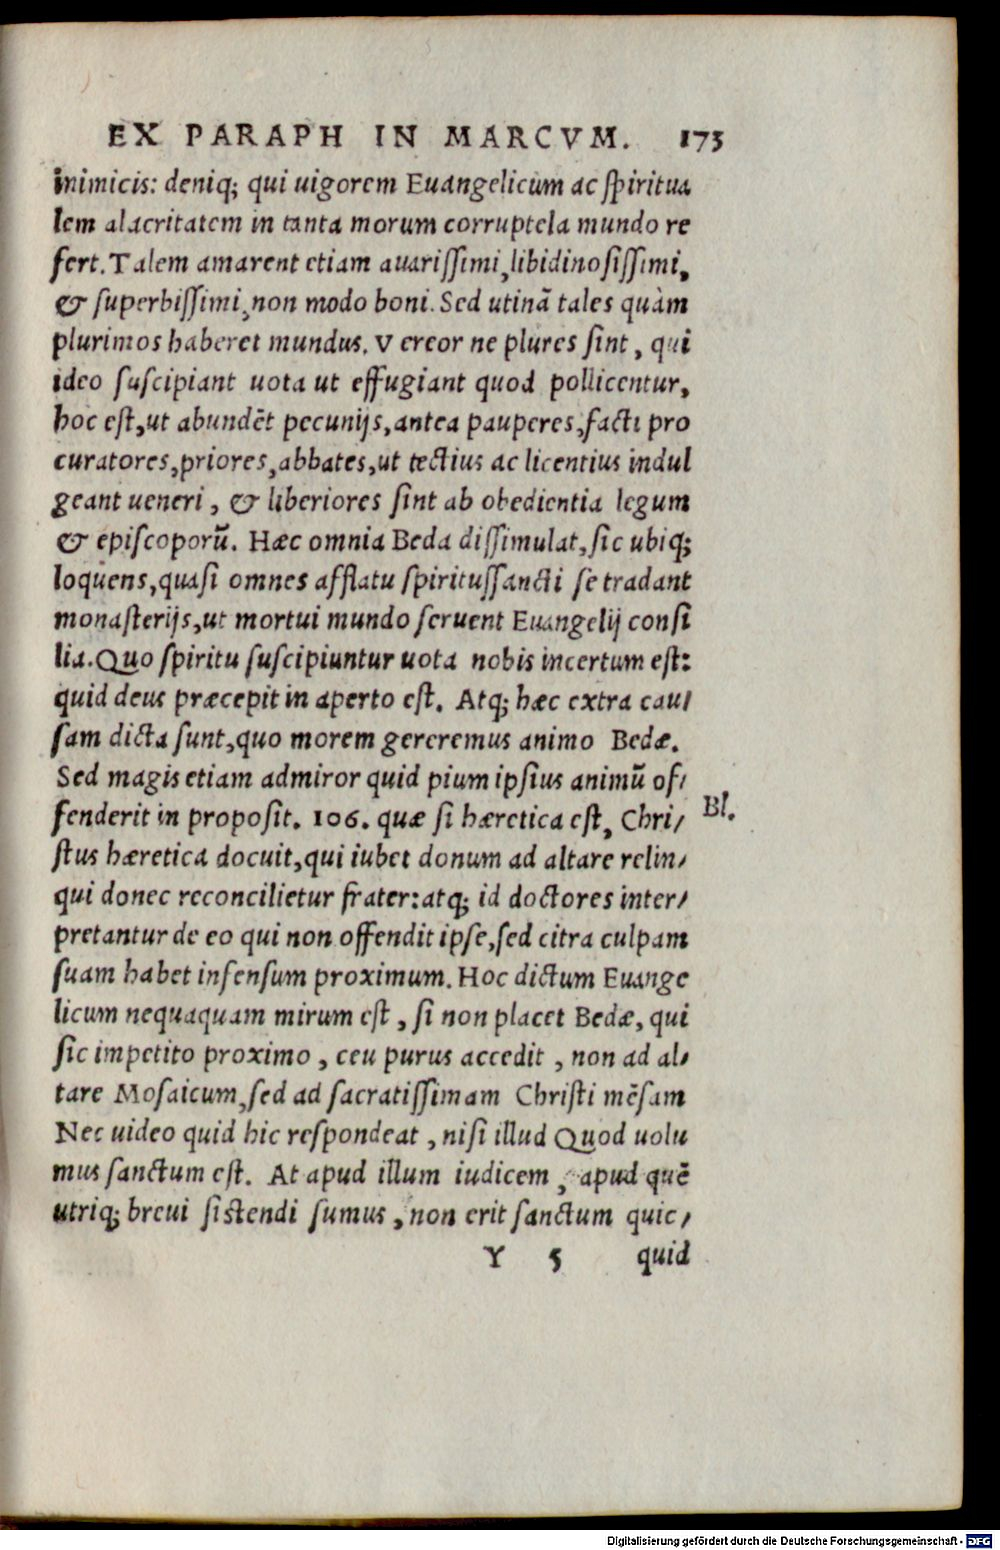 EX PARAPH IN MARCVM. 173
inimicis: deniq; qui uigorem Euangelicum ac spiritua
lem alacritatem in tanta morum corruptela mundo re
fert. Talem amarent etiam auarissimi, libidinosissimi,
& superbissimi, non modo boni. Sed utinā tales quàm
plurimos haberet mundus. Vereor ne plures sint, qui
ideo suscipiant uota ut effugiant quod pollicentur,
hoc est, ut abundēt pecunijs, antea pauperes, facti pro
curatores, priores, abbates, ut tectius ac licentius indul
geant ueneri, & liberiores sint ab obedientia legum
& episcoporū. Hæc omnia Beda dissimulat, sic ubiq;
loquens, quasi omnes afflatu spiritussancti se tradant
monasterijs, ut mortui mundo seruent Euangelij consi
lia. Quo spiritu suscipiuntur uota nobis incertum est:
quid deus præcepit in aperto est. Atq; hæc extra cau/
sam dicta sunt, quo morem gereremus animo Bedæ.
Sed magis etiam admiror quid pium ipsius animū of/
fenderit in proposit. 106. quæ si hæretica est, Chri/
Bl.
stus hæretica docuit, qui iubet donum ad altare relin/
qui donec reconcilietur frater: atq; id doctores inter/
pretantur de eo qui non offendit ipse, sed citra culpam
suam habet infensum proximum. Hoc dictum Euange
licum nequaquam mirum est, si non placet Bedæ, qui
sic impetito proximo, ceu purus accedit, non ad al/
tare Mosaicum, sed ad sacratissimam Christi mēsam
Nec uideo quid hic respondeat, nisi illud Quod uolu
mus sanctum est. At apud illum iudicem, apud quē
utriq; breui sistendi sumus, non erit sanctum quic/
Y 5 quid
Digitalisierung gefördert durch die Deutsche Forschungsgemeinschaft - DFG